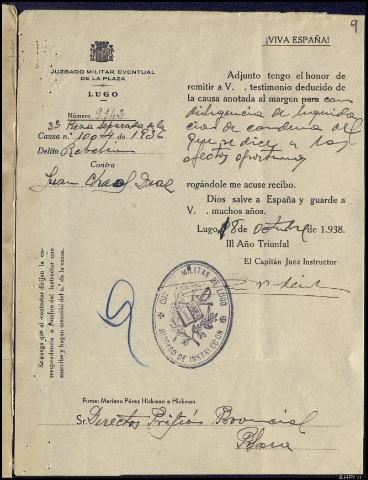 9
¡VIVA ESPAÑA!
JUZGADO MILITAR EVENTUAL
DE LA PLAZA
LUGO
Número 9.742
3ª Pieza separada de la
Causa n.º 100-4 de 1936
Delito Rebelión
Contra
Juan Chao Diaz
Adjunto tengo el honor de
remitir a V. . testimonio deducido de
la causa anotada al margen para con
diligencia de liquida
ción de condena del
que se dice a los
efectos oportunos
rogándole me acuse recibo.
Dios salve a España y guarde a
V. . muchos años.
Lugo, 18 de Octubre de 1.938.
III Año Triunfal
El Capitán Juez Instructor
MILITAR DE LUGO
JUZGADO DE INSTRUCCIÓN
Se ruega que al contestar dirijan la co-
rrespondencia a nombre del Instructor que
suscribe y hagan mención del n.º de la causa.
Firma: Mariano Pérez Hickman e Hickman
Sr. Director Prisión Provincial
Plaza
AHPLu